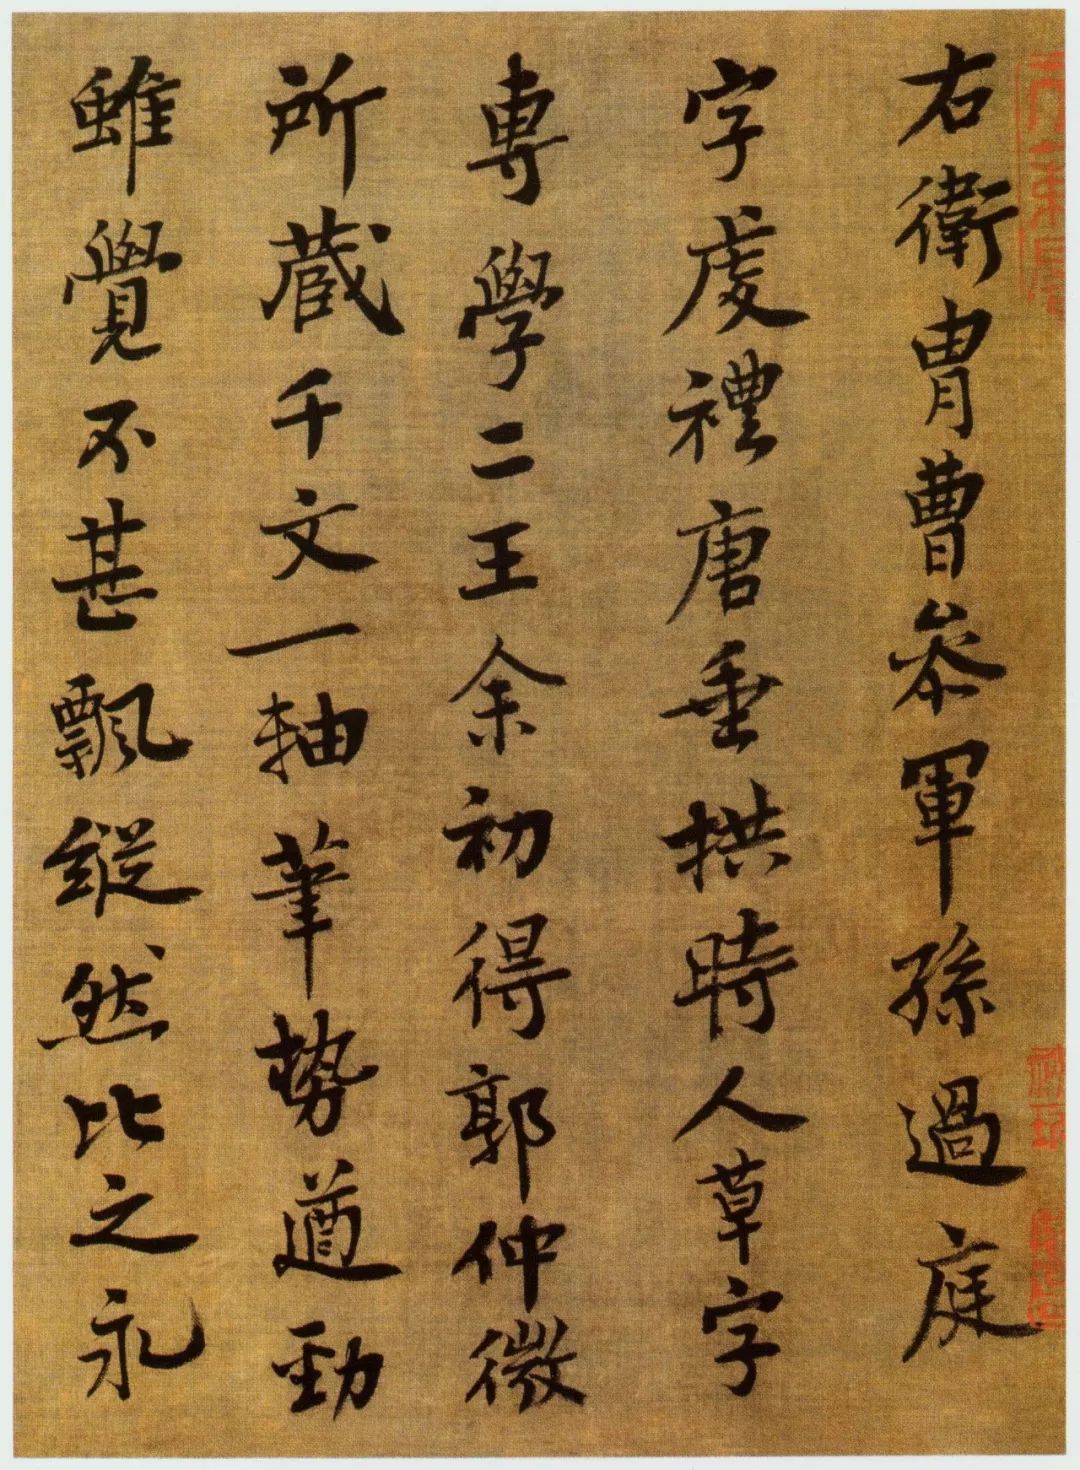 右衛胄曹參軍孫過庭
字虔禮唐垂拱時人草字
專學二王余初得郭仲微
所蔵千文一軸筆勢遒勁
雖覺不甚飄縱然比之永